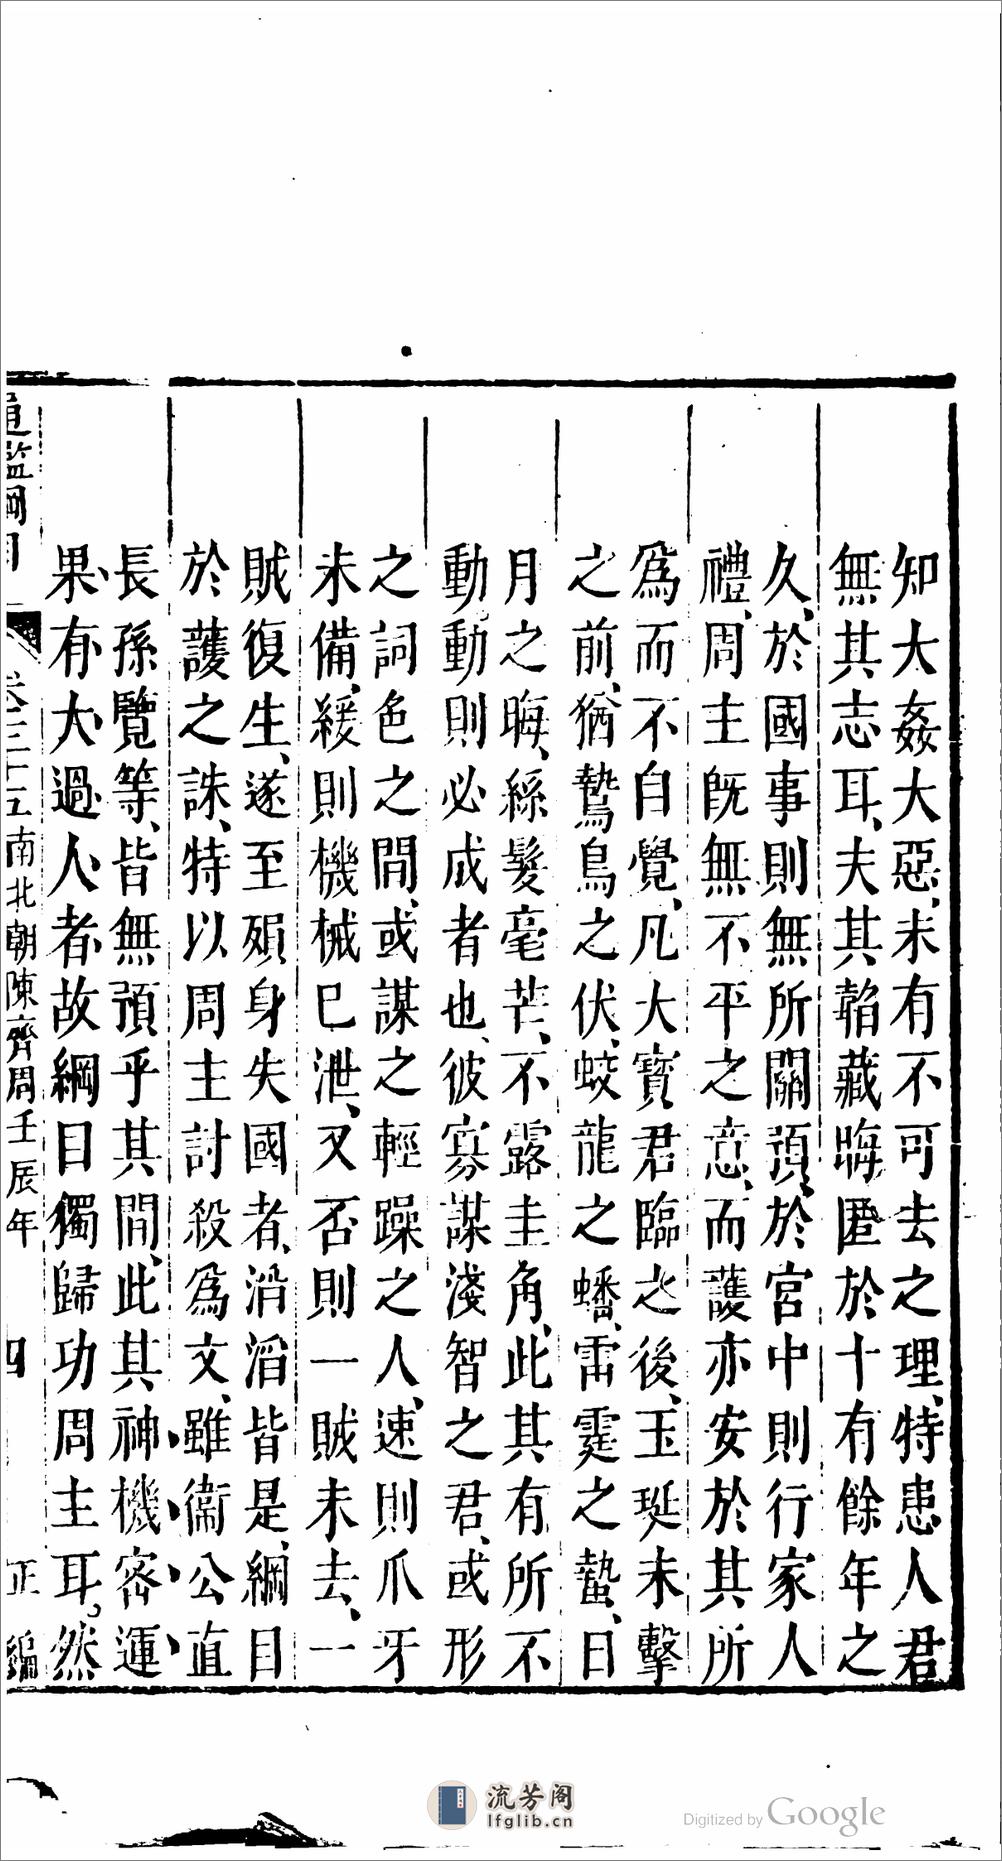 知大姦大惡、未有不可去之理、特患人君
無其志耳、夫其韜藏晦匿於十有餘年之
久、於國事則無所關預、於宮中則行家人
禮、周主既無不平之意、而護亦安於其所
爲而不自覺、凡大寳君臨之後、玉珽未擊
之前、猶鷙鳥之伏、蛟龍之蟠、雷霆之蟄、日
月之晦、絲髮毫芒、不露圭角、此其有所不
動。動則必成者也、彼寡謀淺智之君、或形
之詞色之間、或謀之輕躁之人、速則爪牙
未備、緩則機械已泄、又否則一賊未去、一
賊復生、遂至殞身失國者、滔滔皆是、綱目
於護之誅、特以周主討殺爲文、雖衞公直
長孫覽等、皆無預乎其間、此其神機密運
果有大過人者故綱目獨歸功周主耳。然
通鑑綱目 卷三十五 南北朝陳齊周壬辰年 四 正編
流芳阁
lfglib.cn
Digitized by Google